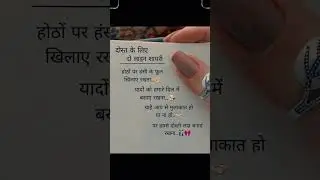 दोस्त के लिए
दो लाइन शायरी
होठों पर हंसी के फूल
खिलाए रखना..
यादों को हमारे दिल में
बसाए रखना..
चाहे आप से मुलाकात हो
या ना हो..
पर हमसे दोस्ती सदा बनाए
रखना..
होठों पर हंसी
खिलाए रख
यादों
मुलाकात हो